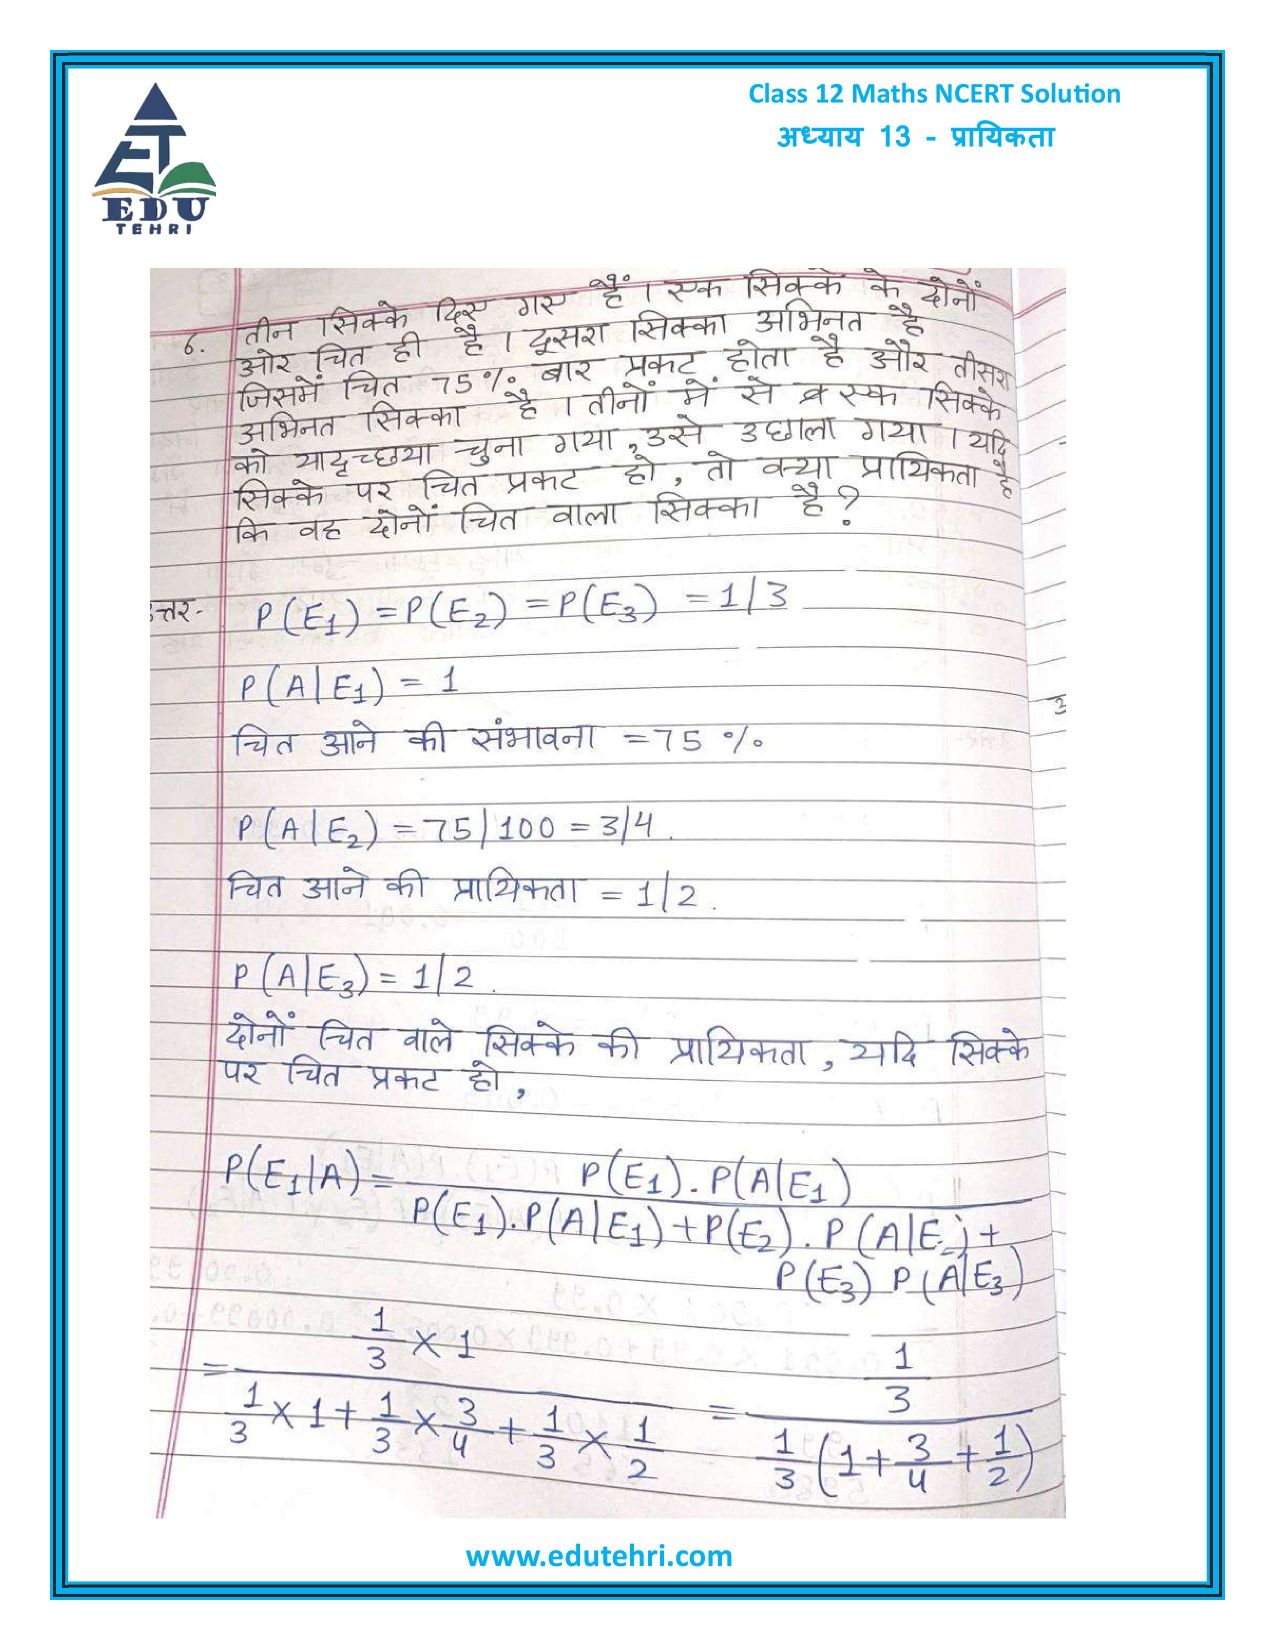 Class 12 Maths NCERT Solution
अध्याय 13 - प्रायिकता
EDU
TEHRI
6. तीन सिक्के दिए गए हैं। एक सिक्के के दोनों
ओर चित ही है। दूसरा सिक्का अभिनत है
जिसमें चित 75% बार प्रकट होता है और तीसरा
अभिनत सिक्का है। तीनों में से एक सिक्के
को यादृच्छया चुना गया, उसे उछाला गया। यदि
सिक्के पर चित प्रकट हो, तो क्या प्रायिकता है
कि वह दोनों चित वाला सिक्का है?
त्तर- P(E₁) = P(E₂) = P(E₃) = 1/3
P(A|E₁) = 1
चित आने की संभावना = 75%
P(A|E₂) = 75/100 = 3/4.
चित आने की प्रायिकता = 1/2.
P(A|E₃) = 1/2.
दोनों चित वाले सिक्के की प्रायिकता, यदि सिक्के
पर चित प्रकट हो,
P(E₁|A) = P(E₁).P(A|E₁)
P(E₁).P(A|E₁)+P(E₂).P(A|E₂)+
P(E₃) P(A|E₃)
= 1/3 × 1 / (1/3 × 1 + 1/3 × 3/4 + 1/3 × 1/2) = 1/3 / (1/3 (1 + 3/4 + 1/2))
www.edutehri.com